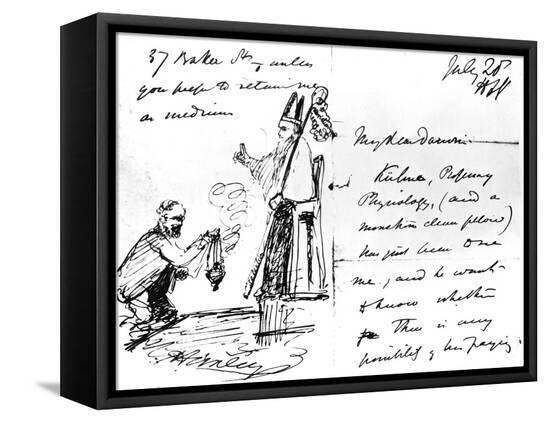 37 Baker St, unless
you prefer to retain me
as medium
July 20
My dear Darwin
Kühne, Prof
Physiology, (and a
clever fellow)
has just been
me, and he wants
to know whether
There is any
possibility of his paying